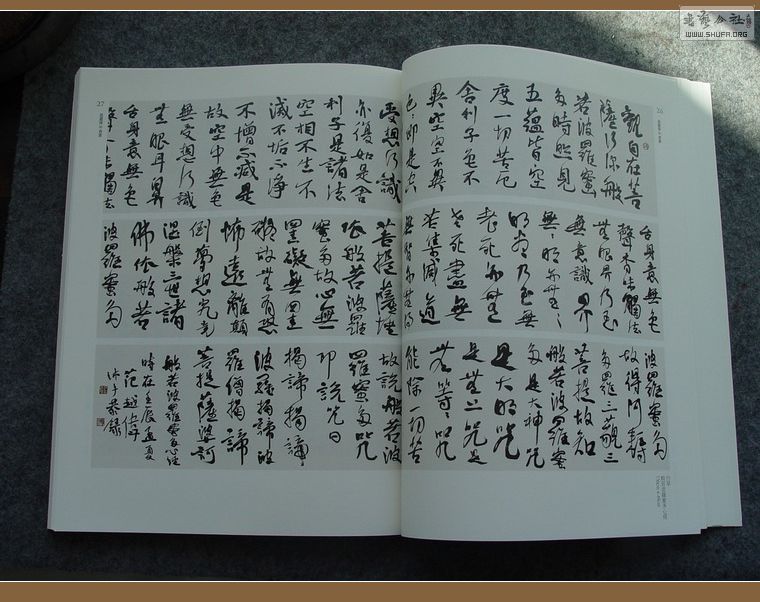 觀自在菩
薩行深般
若波羅蜜
多時照見
五蘊皆空
度一切苦厄
舍利子色不
異空空不異
色色即是空
受想行識
亦復如是舍
利子是諸法
空相不生不
滅不垢不淨
不增不減是
故空中無色
無受想行識
無眼耳鼻
舌身意無色
聲香味觸法
舌身意無色
聲香味觸法
無眼界乃至
無意識界
無無明亦無
明盡乃至無
老死亦無
老死盡無
苦集滅道
無智亦無得
菩提薩埵
依般若波羅
蜜多故心無
罣礙無罣
礙故無有恐
怖遠離顛
倒夢想究竟
涅槃三世諸
佛依般若
波羅蜜多
波羅蜜多
故得阿耨
多羅三藐三
菩提故知
般若波羅蜜
多是大神咒
是大明咒
是無上咒是
無等等咒
能除一切苦
故說般若波
羅蜜多咒
即說咒曰
揭諦揭諦
波羅揭諦波
羅僧揭諦
菩提薩婆訶
般若波羅蜜多心經
時在壬辰孟夏
沐手恭錄
26
27
WWW.SHUFA.ORG